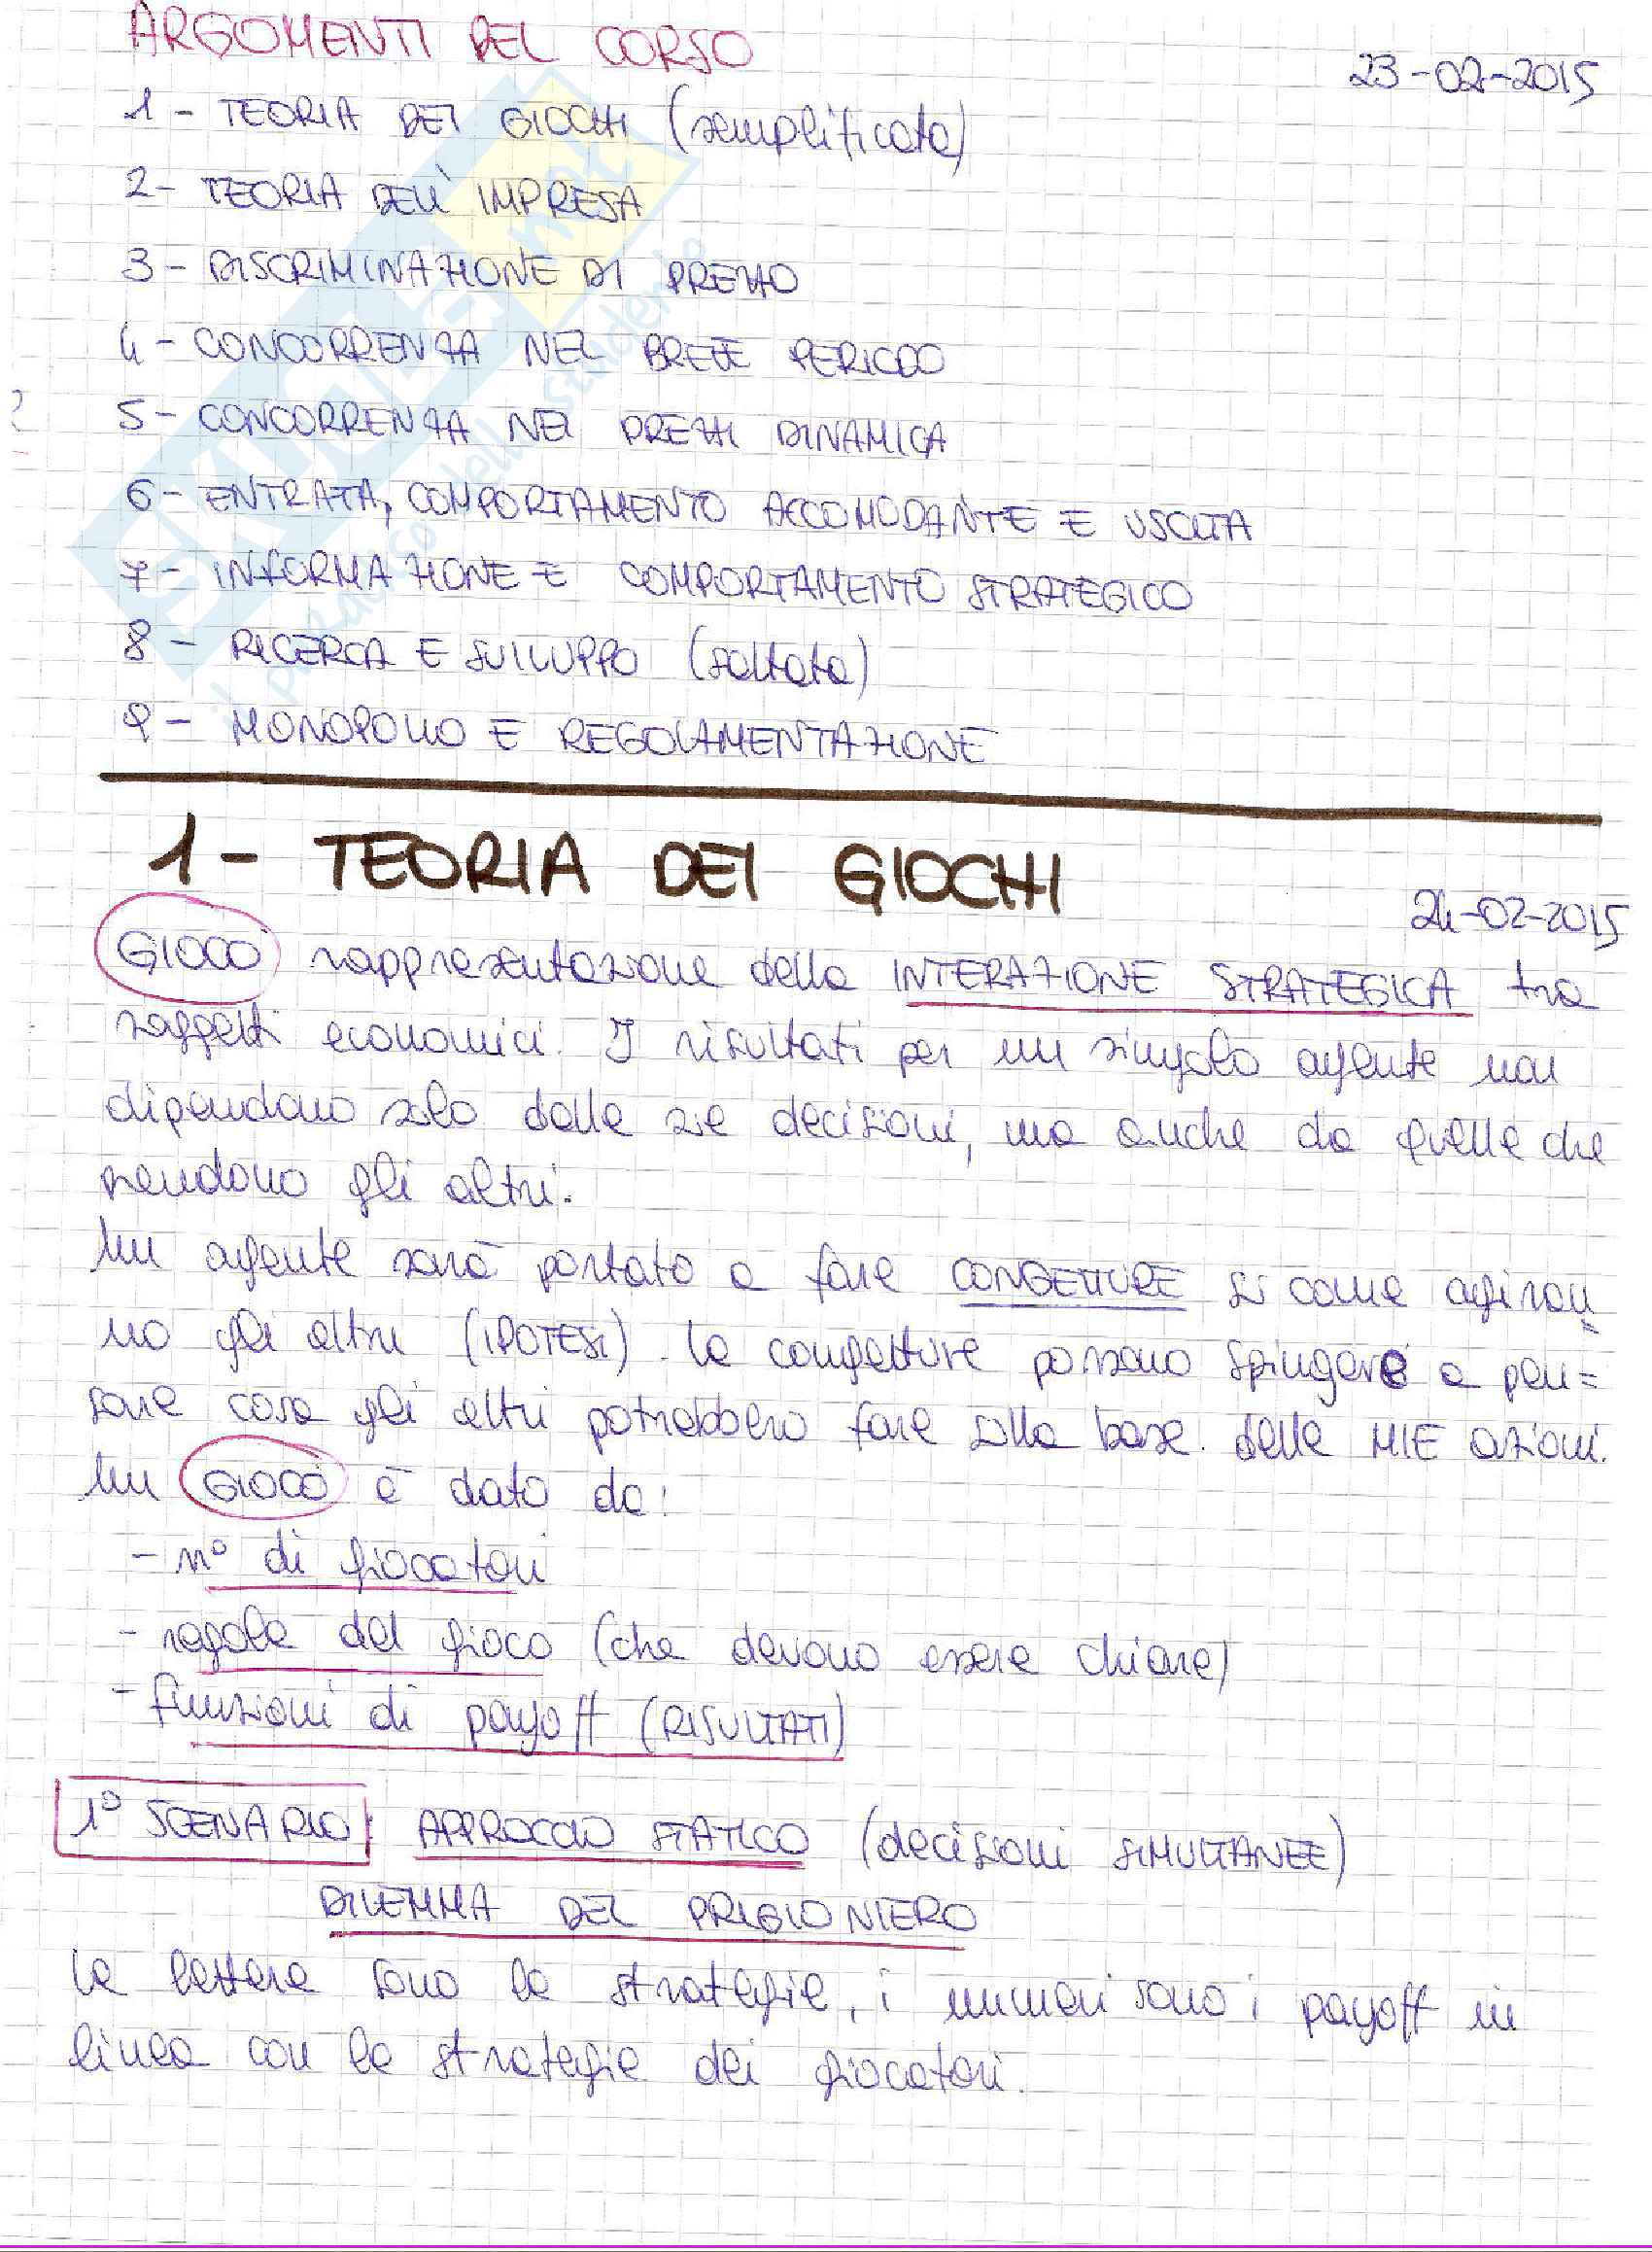 ARGOMENTI DEL CORSO
23-02-2015
1 - TEORIA DEI GIOCHI (semplificata)
2 - TEORIA DELL'IMPRESA
3 - DISCRIMINAZIONE DI PREZZO
4 - CONCORRENZA NEL BREVE PERIODO
5 - CONCORRENZA NEI PREZZI DINAMICA
6 - ENTRATA, COMPORTAMENTO ACCOMODANTE E USCITA
7 - INFORMAZIONE E COMPORTAMENTO STRATEGICO
8 - RICERCA E SVILUPPO (saltata)
9 - MONOPOLIO E REGOLAMENTAZIONE
1 - TEORIA DEI GIOCHI
24-02-2015
GIOCO rappresentazione della INTERAZIONE STRATEGICA tra
soggetti economici. I risultati per un singolo agente non
dipendono solo dalle sue decisioni, ma anche da quelle che
prendono gli altri.
Un agente sarà portato a fare CONGETTURE su come agiran
no gli altri (IPOTESI). Le congetture possono spingere a pen=
sare cosa gli altri potrebbero fare sulla base delle MIE azioni.
Un GIOCO è dato da:
- n° di giocatori
- regole del gioco (che devono essere chiare)
- funzioni di payoff (RISULTATI)
1° SCENARIO: APPROCCIO STATICO (decisioni SIMULTANEE)
DILEMMA DEL PRIGIONIERO
Le lettere sono le strategie, i numeri sono i payoff in
linea con le strategie dei giocatori.